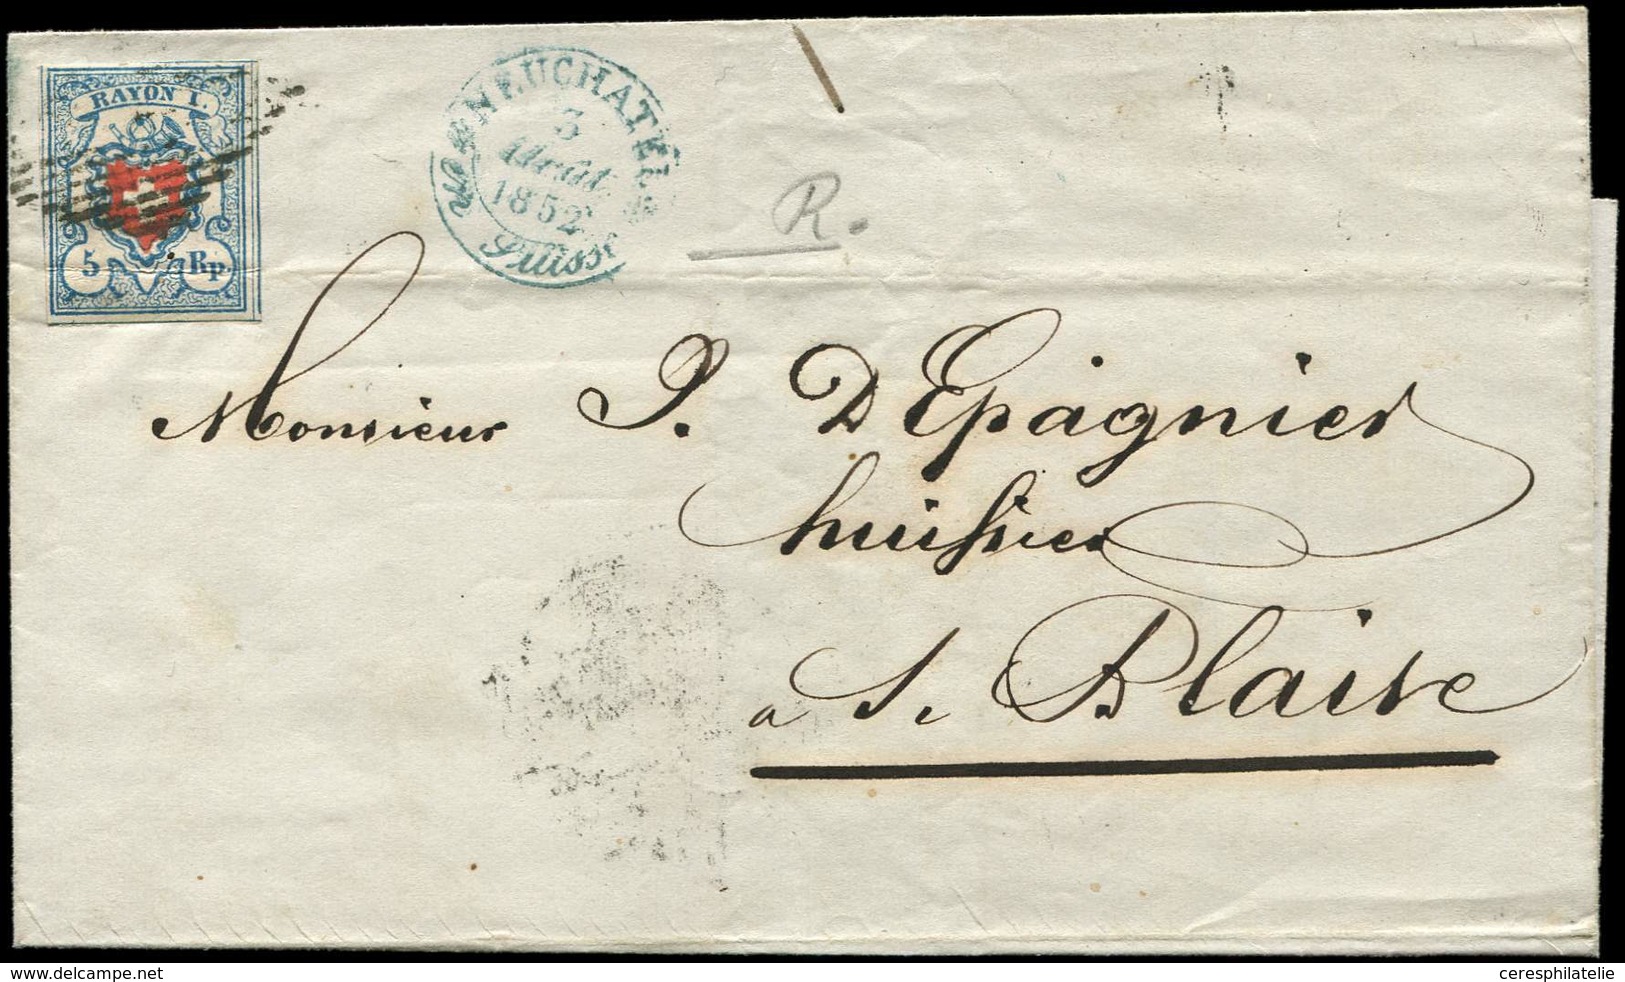 RAYON I.
5 Rp.
NEUCHATEL
3
Août
1852
Suisse
R.
Monsieur J. DEpagnier
huissier
a St. Blaise
www.delcampe.net
ceresphilatelie